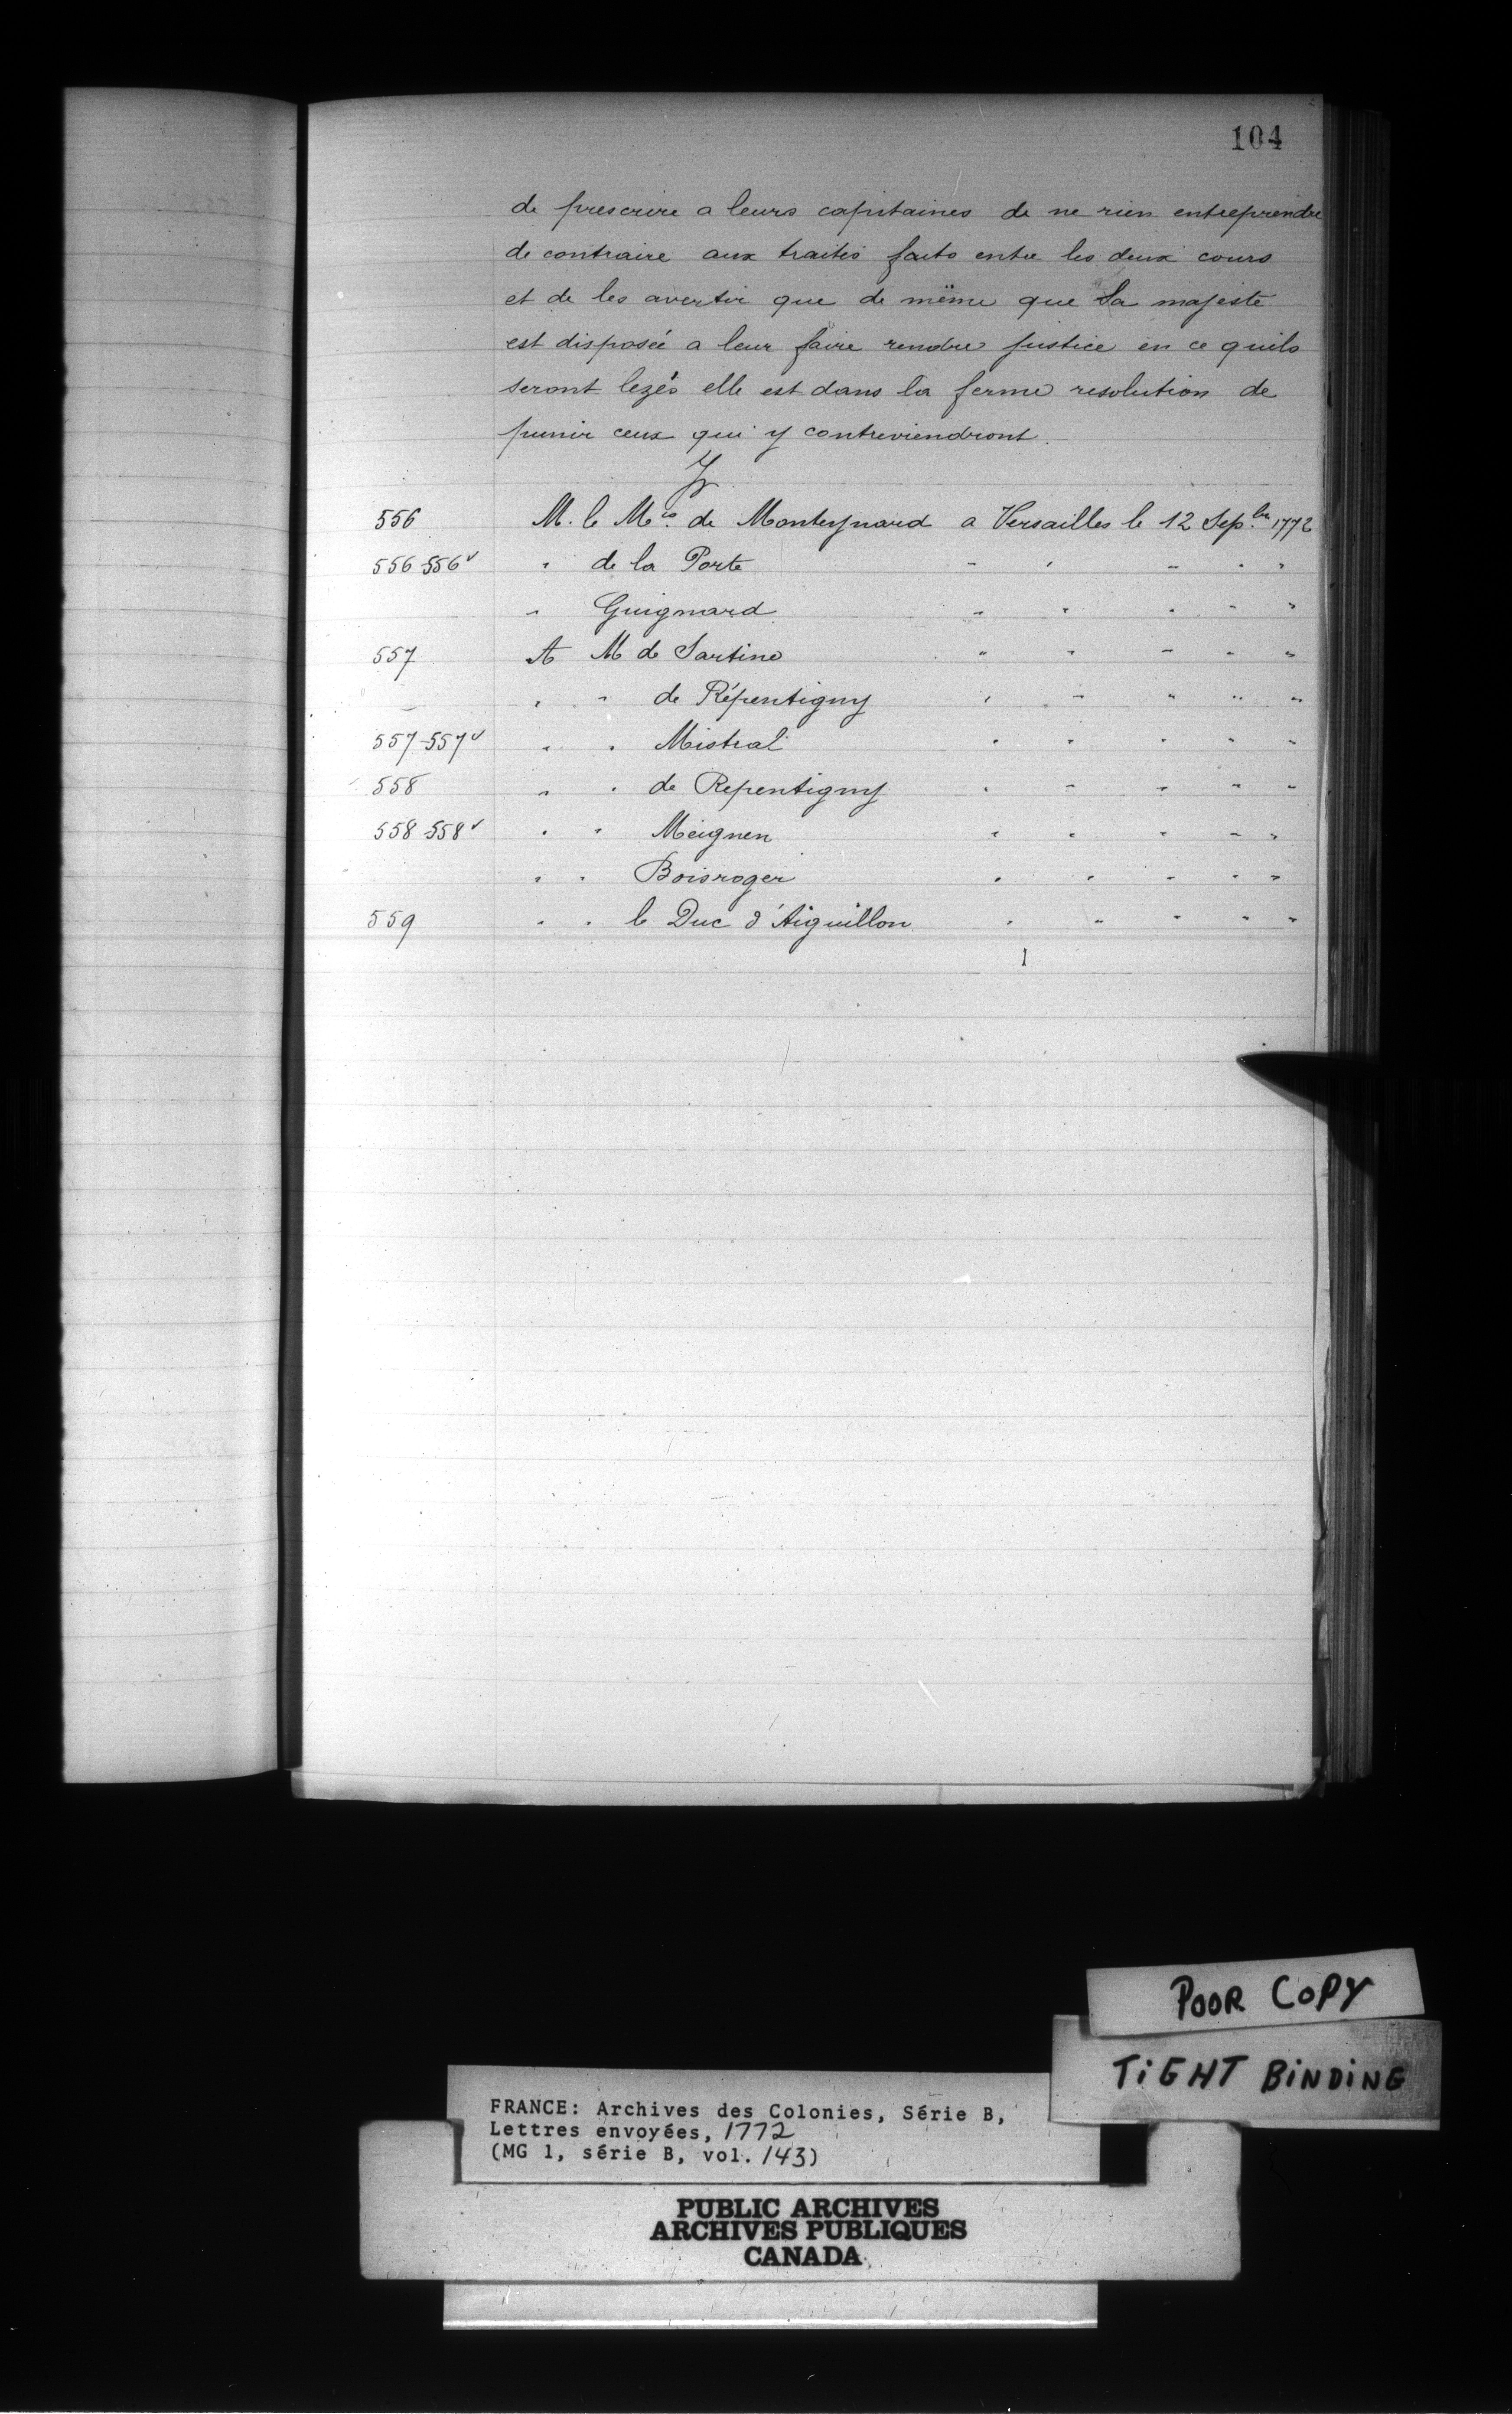 104
de prescrire a leurs capitaines de ne rien entreprendre
de contraire aux traités faits entre les deux cours
et de les avertir que de même que Sa majesté
est disposée a leur faire rendre justice en ce quils
seront lezés elle est dans la ferme resolution de
punir ceux qui y contreviendront.
556 M. le Mis. de Monteynard a Versailles le 12 Sepbre 1772
556-556v " de la Porte " " " " "
" Guignard " " " " "
557 A M de Sartine " " " " "
" " de Répentigny " " " " "
557-557v " " Mistral " " " " "
558 " " de Repentigny " " " " "
558-558v " " Meignen " " " " "
" " Boisroger " " " " "
559 " " le Duc d'Aiguillon " " " " "
POOR COPY
TIGHT BINDING
FRANCE: Archives des Colonies, Série B,
Lettres envoyées, 1772
(MG 1, série B, vol. 143)
PUBLIC ARCHIVES
ARCHIVES PUBLIQUES
CANADA